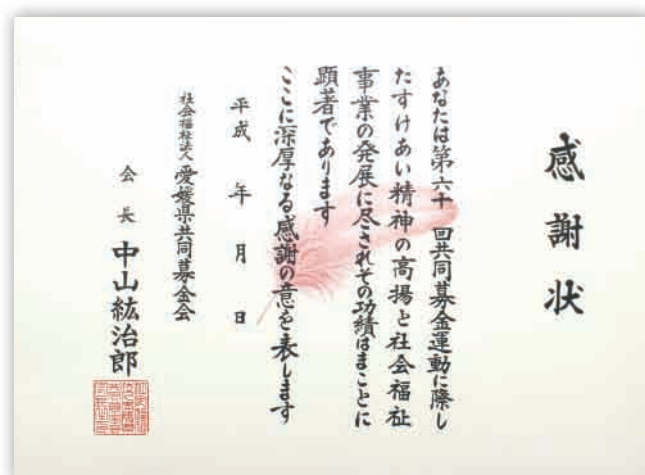 感謝状
あなたは第六十 回共同募金運動に際し
たすけあい精神の高揚と社会福祉
事業の発展に尽されその功績はまことに
顕著であります
ここに深厚なる感謝の意を表します
平成 年 月 日
社会福祉法人 愛媛県共同募金会
会長 中山紘治郎